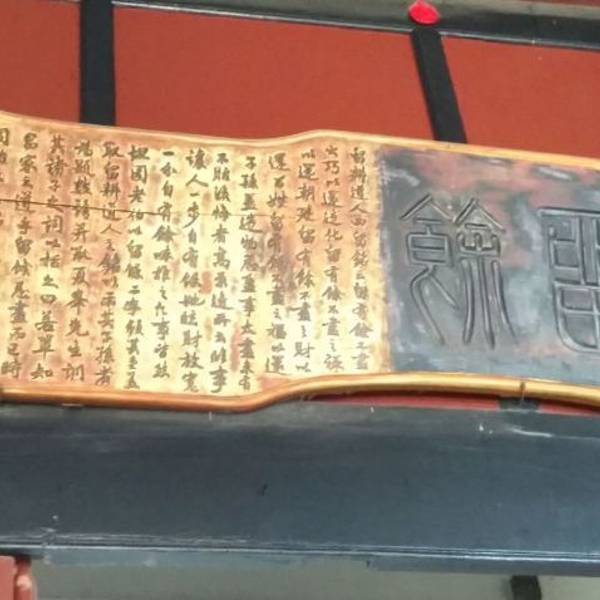 留餘
留耕道人四留銘云留有餘不盡
之巧以還造化留有餘不盡之祿
以還朝廷留有餘不盡之財以
還百姓留有餘不盡之福以還
子孫蓋造物忌盈事太盡未有
不貽後悔者高景逸所云臨事
讓人一步自有餘地臨財放寬
一分自有餘味推之凡事皆然
坦園老伯以留餘二字顏其堂蓋
取留耕道人之銘以示其子孫者
為題數語并取夏峯先生訓
其諸子之詞以括之曰若輩知
昌家之道乎留餘忌盡而已時